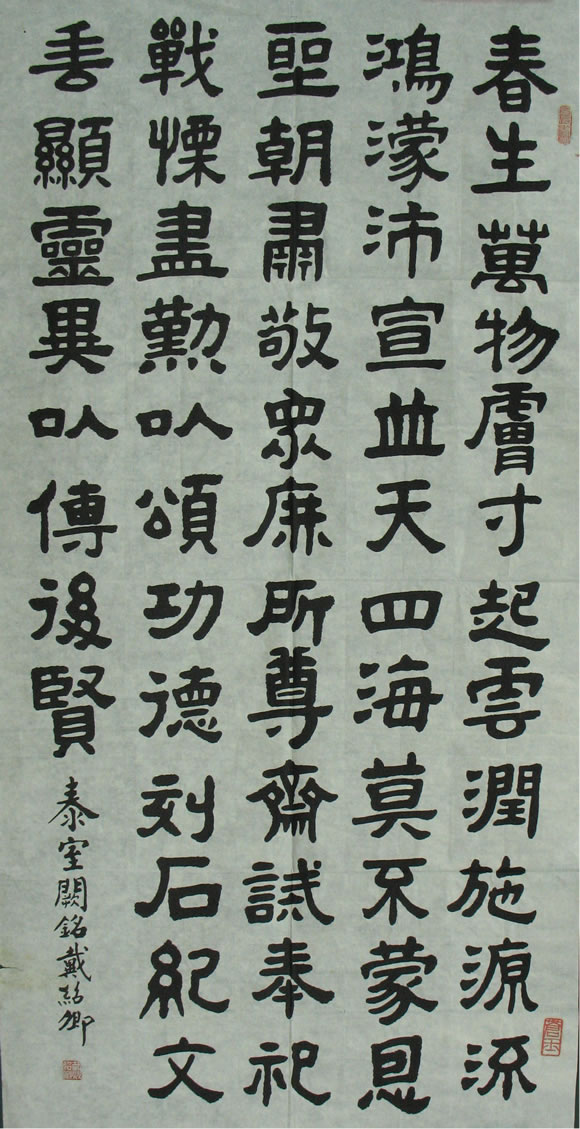 春生萬物膚寸起雲潤施源流
鴻濛沛宣並天四海莫不蒙恩
聖朝肅敬眾庶所尊齋誡奉祀
戰慄盡勤以頌功德刻石紀文
垂顯靈異以傳後賢
泰室闕銘戴紹卿